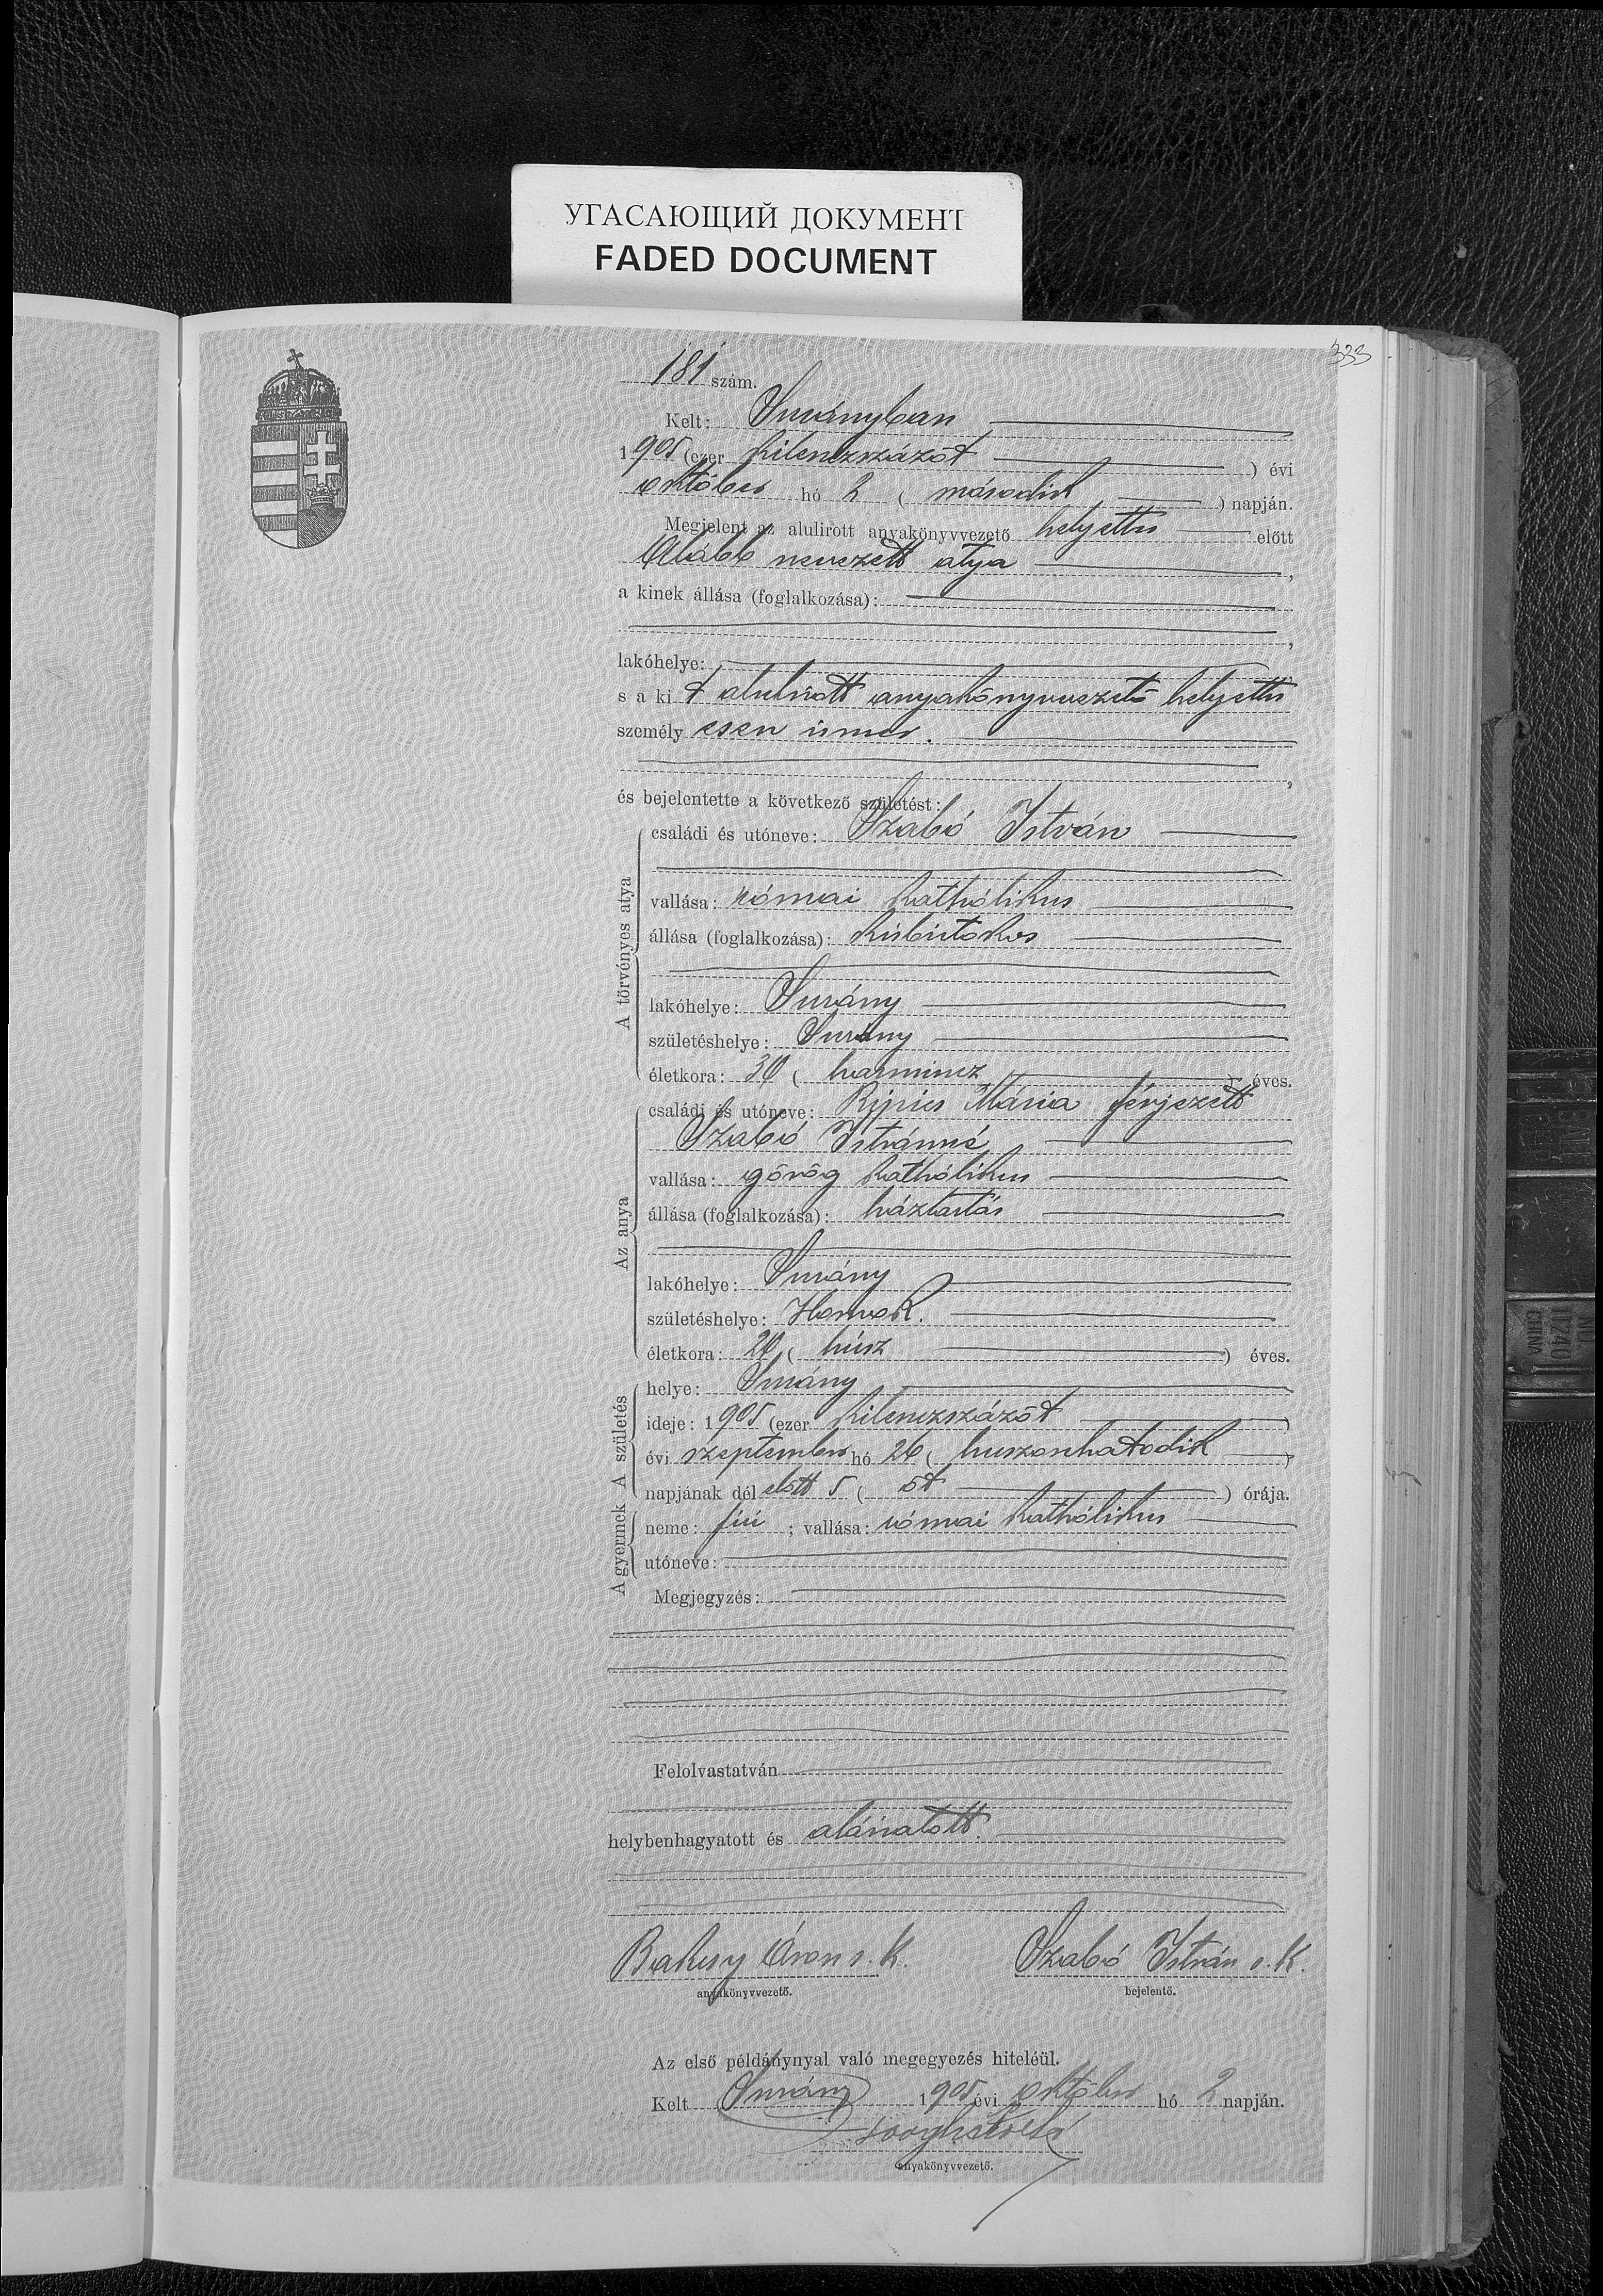 УГАСАЮЩИЙ ДОКУМЕНТ
FADED DOCUMENT
333
181 szám.
Kelt: Surányban
1905 (ezer kilenczszázöt ) évi
október hó 2 ( második ) napján.
Megjelent az alulirott anyakönyvvezető helyettes előtt
Alább nevezett atya ,
a kinek állása (foglalkozása):
,
lakóhelye:
s a ki t alulirott anyakönyvvezető helyettes
személy esen ismer.
,
és bejelentette a következő születést:
A törvényes atya
családi és utóneve: Szabó István
vallása: római katholikus
állása (foglalkozása): kisbirtokos
lakóhelye: Surány
születéshelye: Surány
életkora: 30 ( harmincz ) éves.
Az anya
családi és utóneve: Mária férjezett
Szabó Istvánné
vallása: görög katholikus
állása (foglalkozása): háztartás
lakóhelye: Surány
születéshelye:
életkora: 20 ( húsz ) éves.
A születés
helye: Surány
ideje: 1905 (ezer kilenczszázöt )
évi szeptember hó 26 ( huszonhatodik )
napjának dél előtt 5 ( öt ) órája.
A gyermek
neme: fiú ; vallása: római katholikus
utóneve:
Megjegyzés:
Felolvastatván
helybenhagyatott és aláiratott.
Baksy Áron s. k. Szabó István s. k.
anyakönyvvezető. bejelentő.
Az első példánynyal való megegyezés hiteléül.
Kelt Surány 1905 évi október hó 2 napján.
anyakönyvvezető.